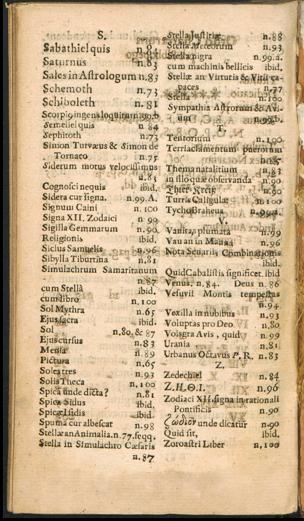 S.
Sabathiel quis n.81
Saturnus n.83
Sales in Astrologum n.83
Schemoth n.73
Schiboleth n.81
Scorpio ingens loquitur n.99.b.
Semelei quis n 84
Sephiroth n.73
Simon Turvæus & Simon de
Tornaco n.75
Siderum motus velocissimus
n.81
Cognosci nequis ibid.
Sidera cur signa. n.99.A.
Signum Caini n.100
Signa XII, Zodaici n 99
Sigilla Gemmarum n.90
Religionis ibid.
Siclus Samuelis n.96
Sibylla Tiburtina n.81
Simulachrum Samaritanum
n.87
cum Stellâ ibid,
cum libro n,100
Sol Mythra n.65
Ejus sacra ibid.
Sol n,80. & 87
Ejus cursus n.83
Mensa n.89
Pictura n.65
Soles tres n.93
Solis Theca n,100
Spica unde dicta? n.81
Spica Sidus ibid.
Spicæ Isidis ibid.
Spuma cur albescat n.98
Stellæ an Animalia. n.77. seqq.
Stella in Simulachro Cæsaris
n.87
Stella Justitiæ n.88
Stella Meteorum n.93
Stella nigra n.99.a.
cum machinis bellicis ibid.
Stellæ an Virtutis & Vitii ca-
paces n.77
Stella n.100
Sympathia Astrorum & Avi-
um n.99.b.
T.
Tentorium n.100
Terriaclamentum puerorum
n.85
Themanatalitium n.83
in illo quæ observanda n.90
n.90
Turris Caligulæ n.100
Tycho Braheus n.99.a.
V.
Vanitas, plumata n.99
Vau an in Maüaa n.96
Nota Senarii Combinationis
ibid.
Quid Cabalistis significet. ibid
Venus, n.84. Deus n.86
Vesuvii Montis tempestas
n.94
Vexilla in nubibus n.93
Voluptas pro Deo n.80
Voisgra Avis, quid n.99
Urania n.81
Urbanus Octavus P. R. n.83
Z.
Zedechiel n.84
Z.H.Θ.I. n.96
Zodiaci XII. signa in rationali
Pontificis n.90
ζώδιον unde dicatur n.90
Quid sit, ibid.
Zoroastri Liber n.100